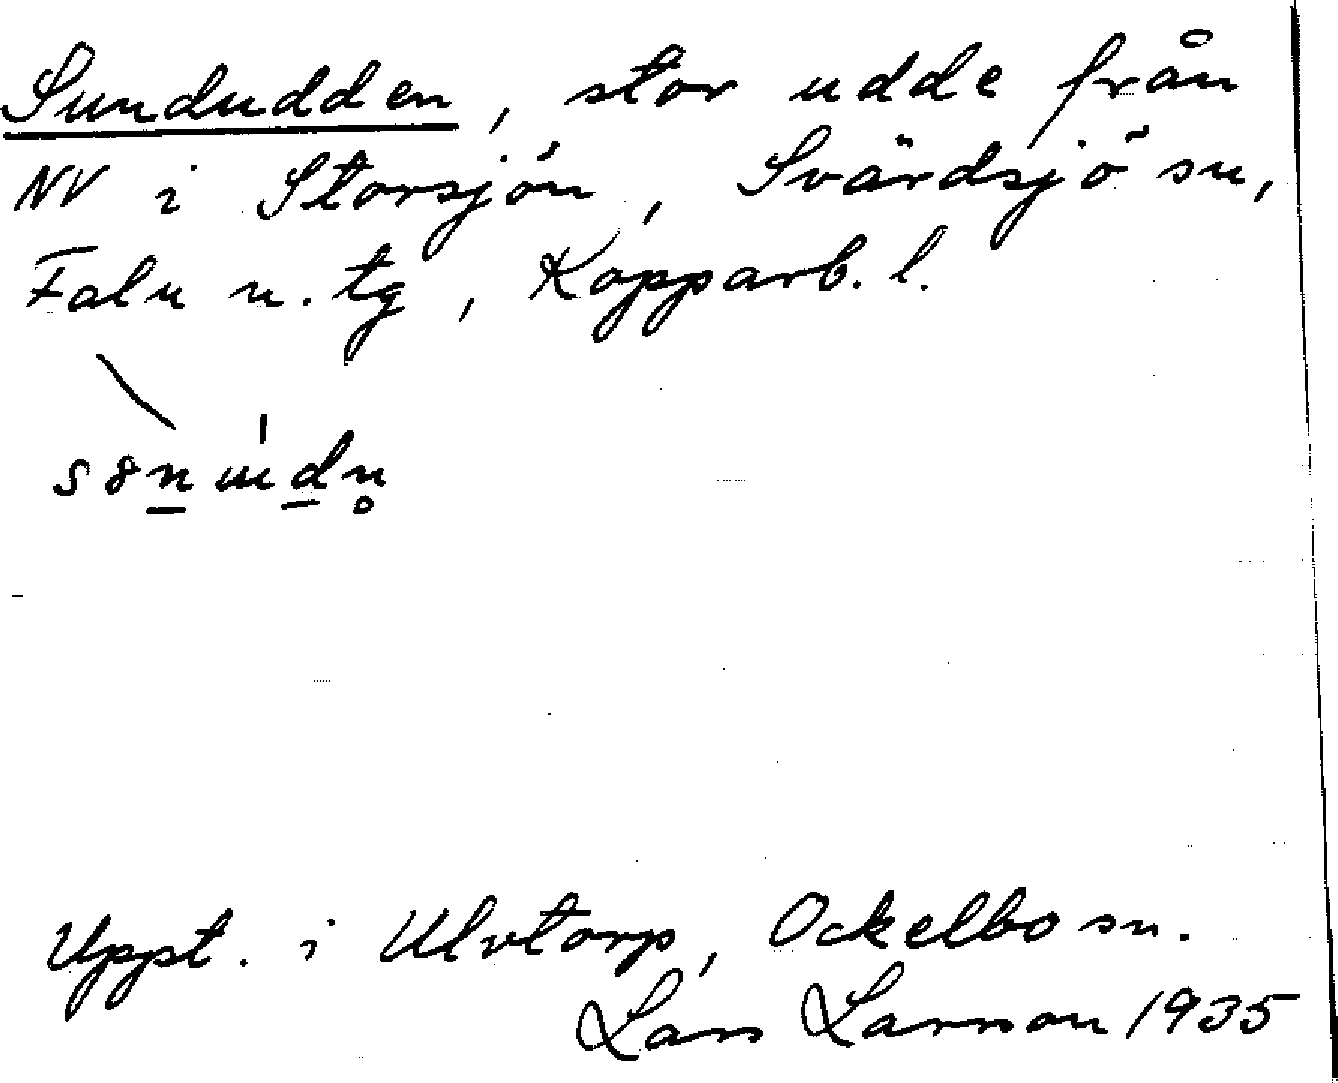 Sundudden, stor udde från
NV i Storsjön, Svärdsjö sn,
Falu n. tg, Kopparb. l.
Uppt. i Ulvtorp, Ockelbo sn.
Lars Larsson 1935